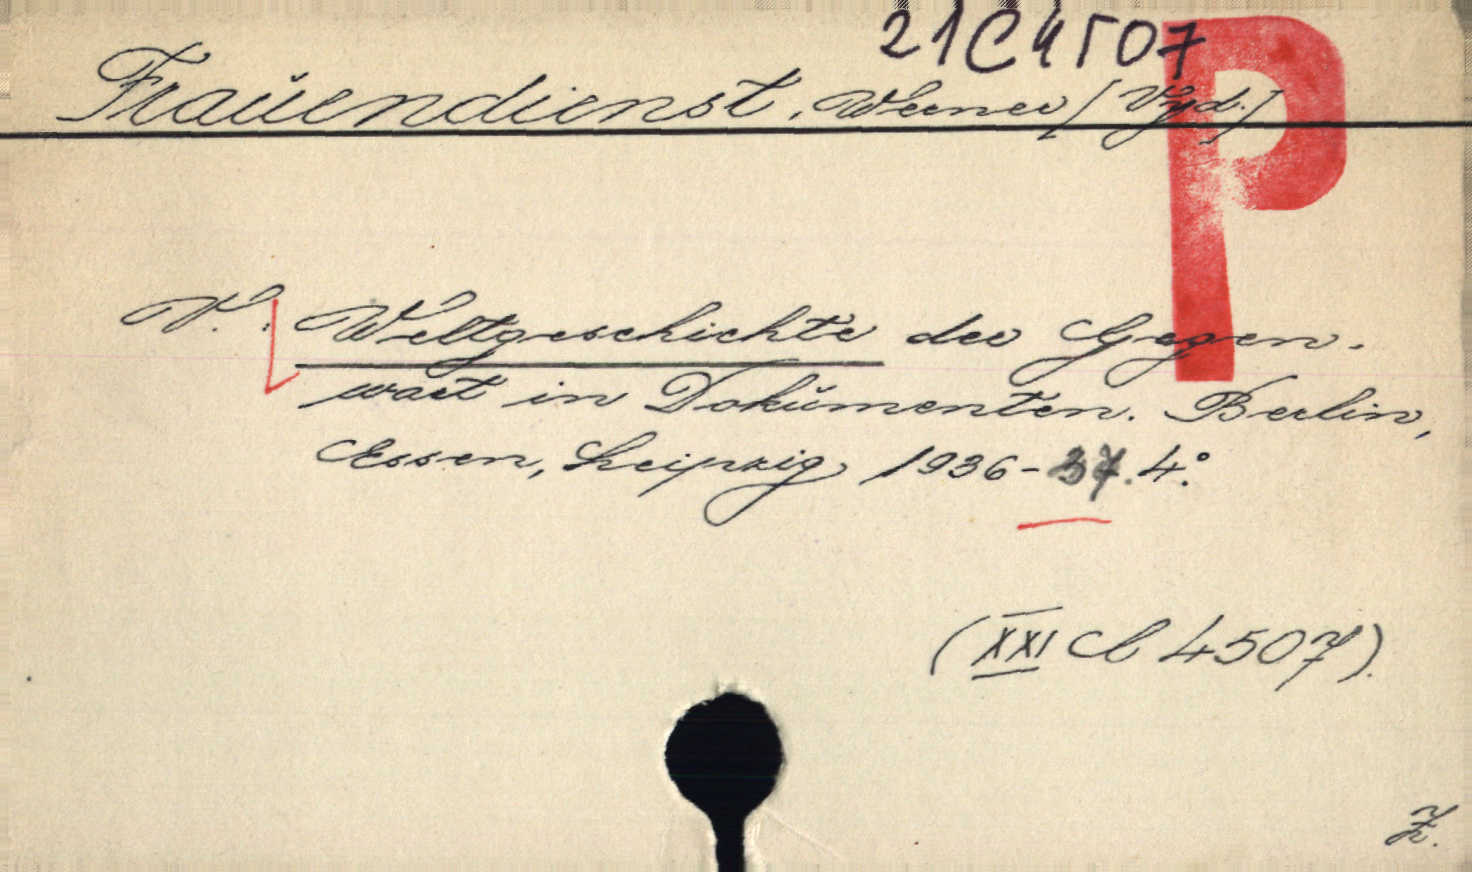 21C4507
P
Frauendienst, Werner [Vyd.]
V.: Weltgeschichte der Gegen-
wart in Dokumenten. Berlin,
Essen, Leipzig 1936-37. 4°.
(XXI C 4507).
Ž.